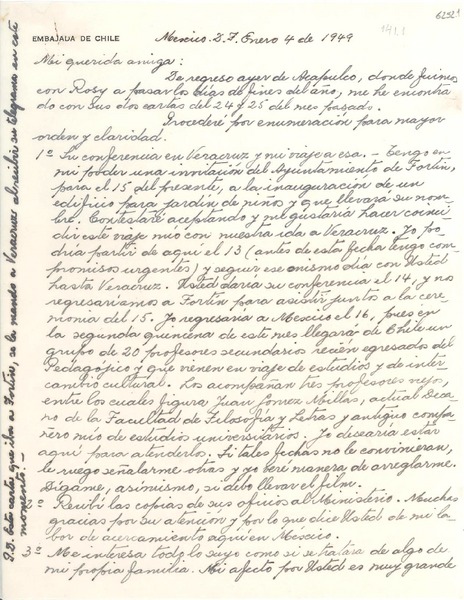 6252
1921
EMBAJADA DE CHILE
Mexico. D. F. Enero 4 de 1949
Mi querida amiga:
De regreso ayer de Acapulco, donde fuimos
con Rosy a pasar los días de fines del año, me he encontra
do con sus dos cartas del 24 y 25 del mes pasado.
Procederé por enumeración para mayor
orden y claridad.
1º Su conferencia en Veracruz y mi viaje a esa. - Tengo en
mi poder una invitación del Ayuntamiento de Fortín,
para el 15 del presente, a la inauguración de un
edificio para jardín de niños y que llevará su nom-
bre. Contestaré aceptando y me gustaría hacer coinci
dir este viaje mío con nuestra ida a Veracruz. Yo po
dría partir de aquí el 13 (antes de esta fecha tengo com
promisos urgentes) y seguir ese mismo día con Usted
hasta Veracruz. Usted daría su conferencia el 14, y nos
regresaríamos a Fortín para asistir juntos a la cere
monia del 15. Yo regresaría a Mexico el 16, pues en
la segunda quincena de este mes llegará de Chile un
grupo de 20 profesores secundarios recién egresados del
Pedagógico y que vienen en viaje de estudios y de inter
cambio cultural. Los acompañan tres profesores viejos,
entre los cuales figura Juan Gómez Millas, actual Deca
no de la Facultad de Filosofía y Letras y antiguo compa
ñero mío de estudios universitarios. Yo desearía estar
aquí para atenderlos. Si tales fechas no le convinieran,
le ruego señalarme otras y yo veré manera de arreglarme.
Dígame, asimismo, si debo llevar el film.
2º Recibí las copias de sus oficios al Ministerio. Muchas
gracias por su atención y por lo que dice Usted de mi la
bor de acercamiento aquí en Mexico.
3º Me interesa todo lo suyo como si se tratara de algo de
mi propia familia. Mi afecto por Usted es muy grande
P.D. Esta carta, que iba a Fortín, se la mando a Veracruz al recibir su telegrama en este
momento. -